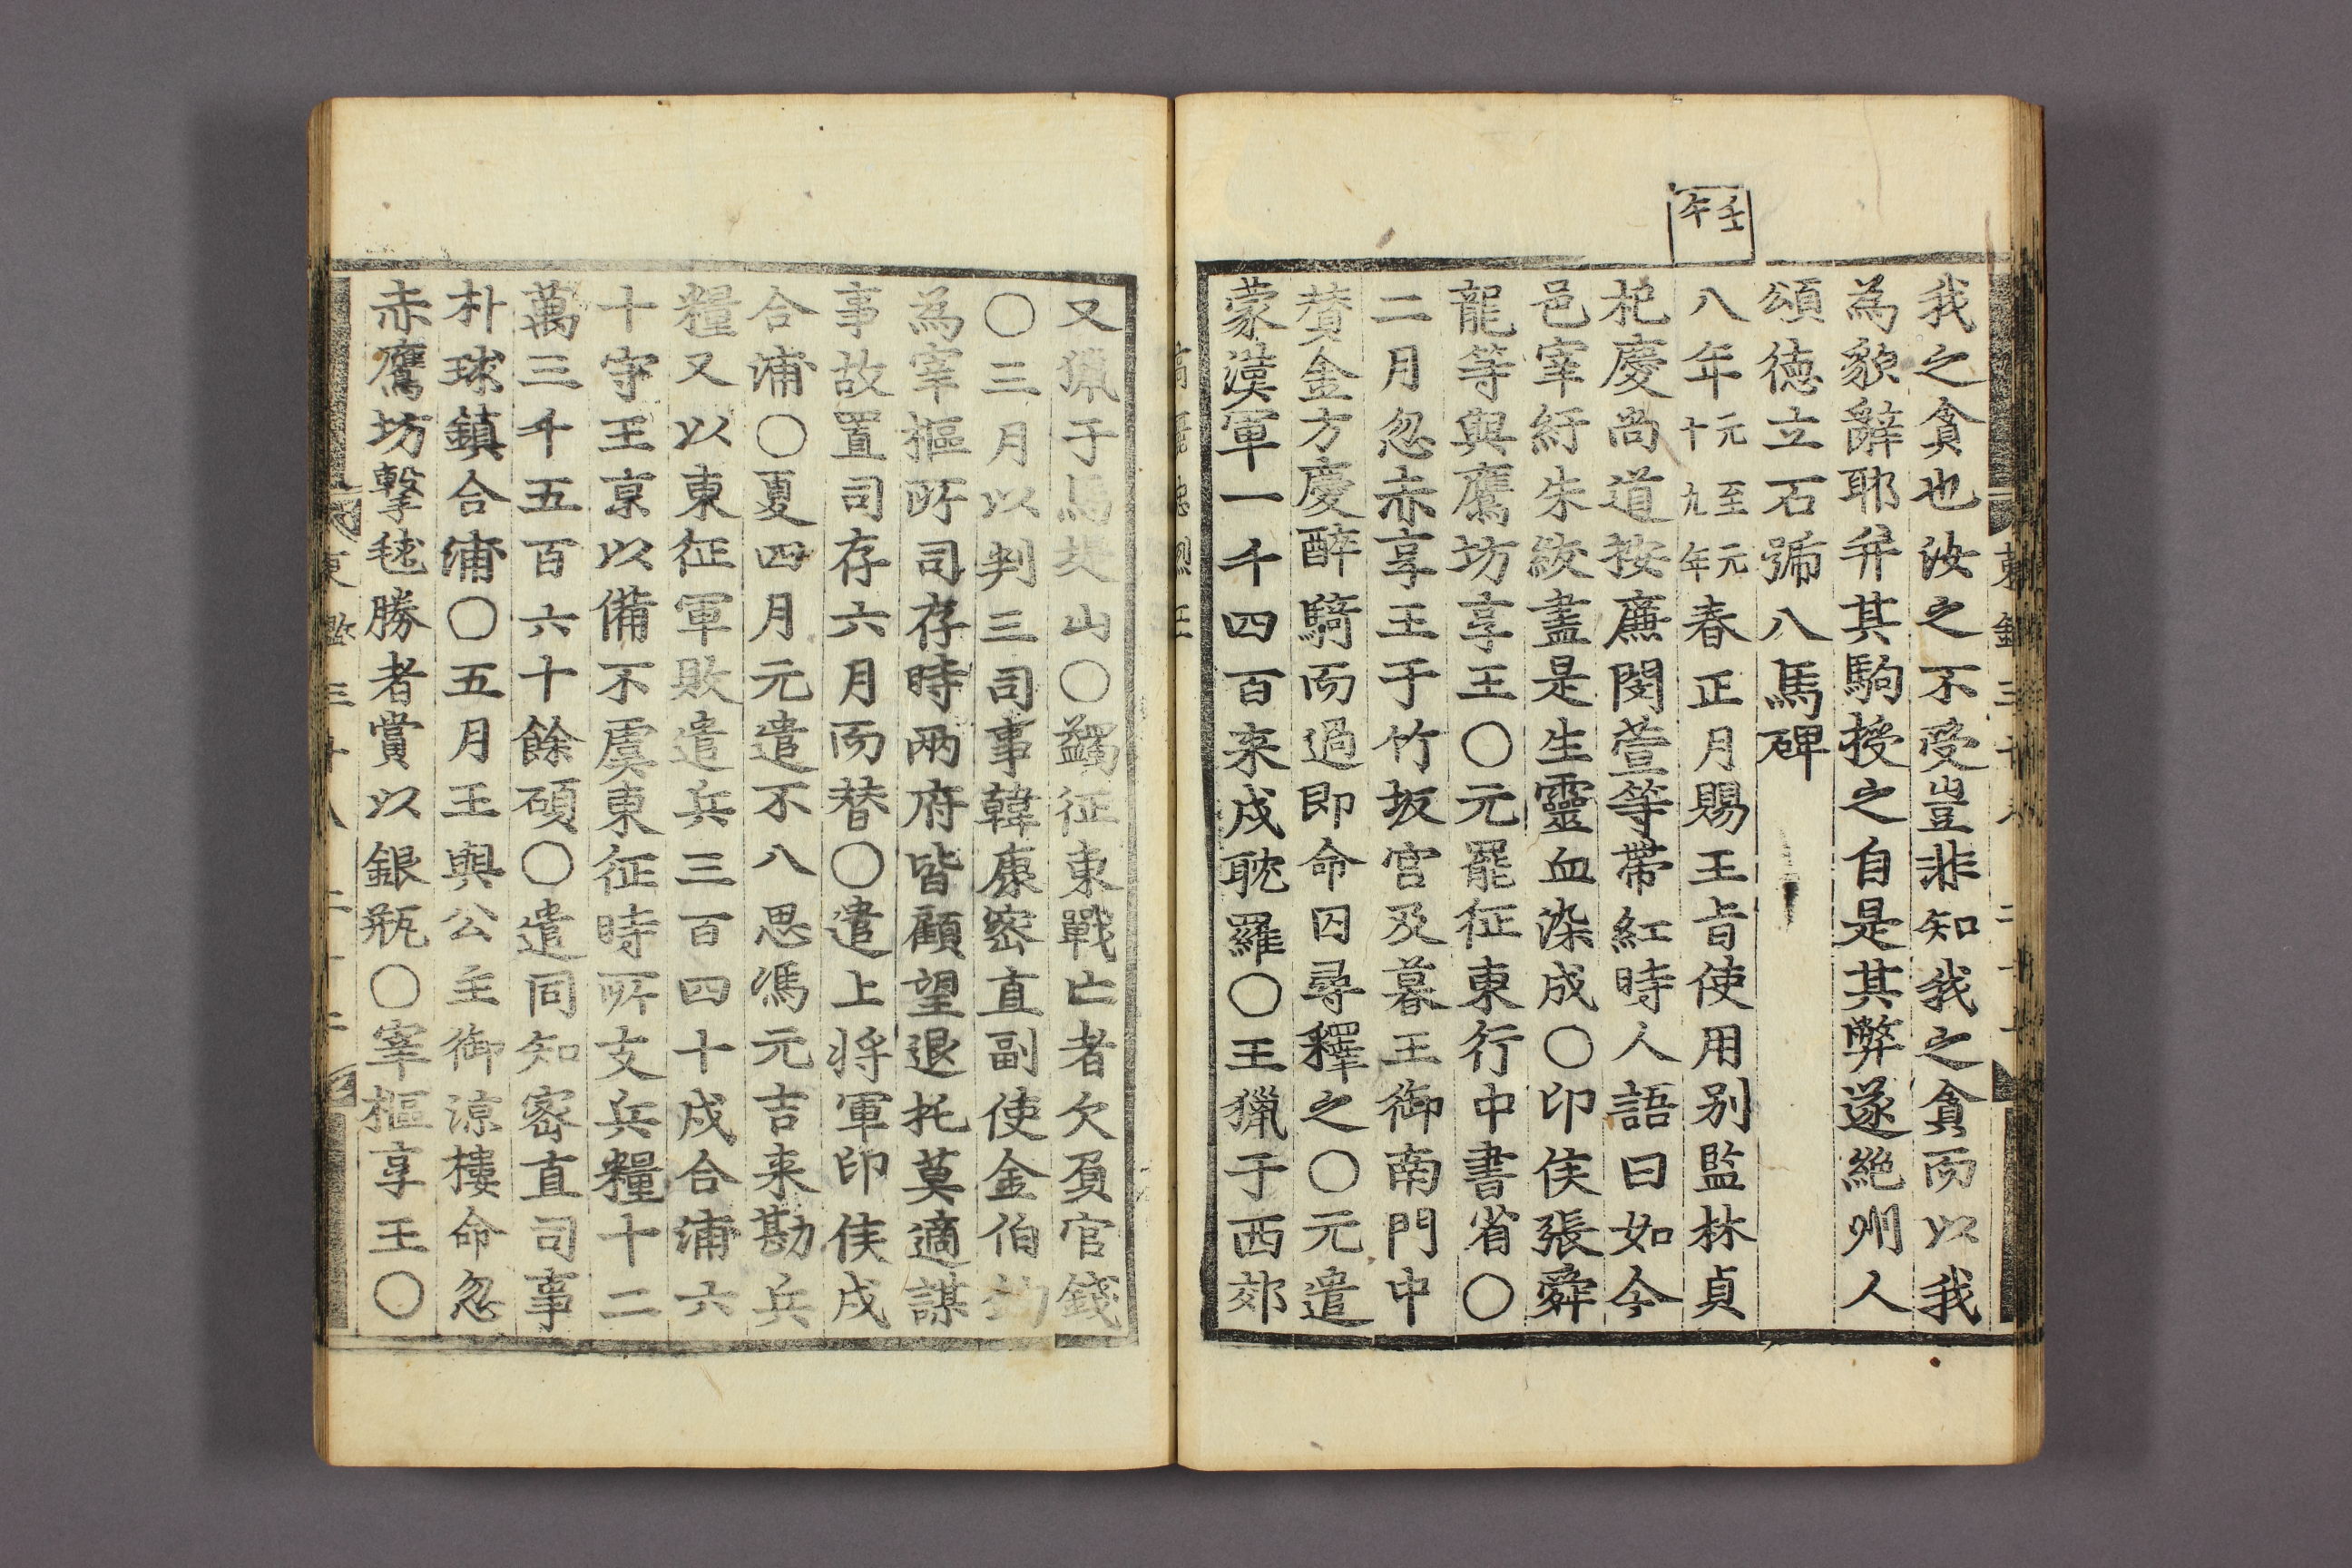 我之貪也汝之不受豈非知我之貪而以我
為貌辭耶并其駒授之自是其弊遂絶州人
頌德立石號八馬碑
壬午
八年元十九至元年春正月賜王旨使用别監林貞
杞慶尚道按廉閔萱等帶紅時人語曰如今
邑宰紆朱紱盡是生靈血染成○印侯張舜
龍等與鷹坊享王○元罷征東行中書省○
二月忽赤享王于竹坂宮及暮王御南門中
賛金方慶醉騎而過即命囚尋釋之○元遣
蒙漢軍一千四百来戍耽羅○王獵于西郊
又獵于馬堤山○蠲征東戰亡者欠負官錢
○三月以判三司事韓康密直副使金伯鈞
為宰樞所司存時兩府皆顧望退托莫適謀
事故置司存六月而替○遣上将軍印侯戍
合浦○夏四月元遣不八思馮元吉来勘兵
糧又以東征軍敗遣兵三百四十戍合浦六
十守王京以備不虞東征時所支兵糧十二
萬三千五百六十餘碩○遣同知密直司事
朴球鎮合浦○五月王與公主御涼樓命忽
赤鷹坊擊毬勝者賞以銀瓶○宰樞享王○